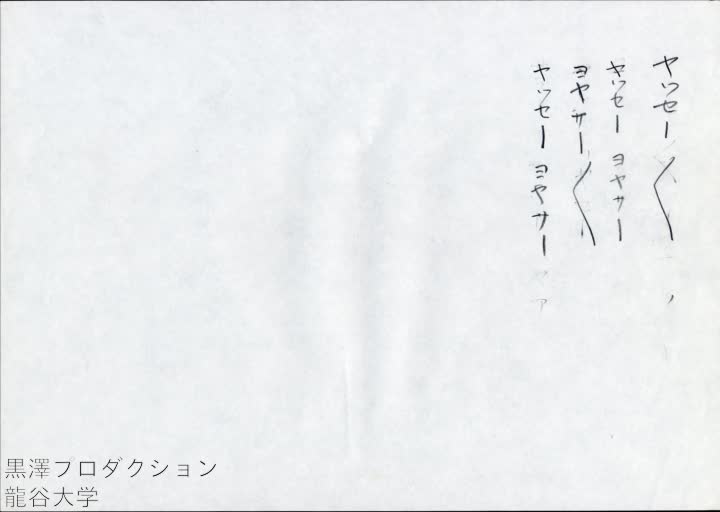 ヤッセー〱
ヤッセー ヨヤサー
ヨヤサー〱
ヤッセー ヨヤサー
黒澤フロダクション
龍谷大学